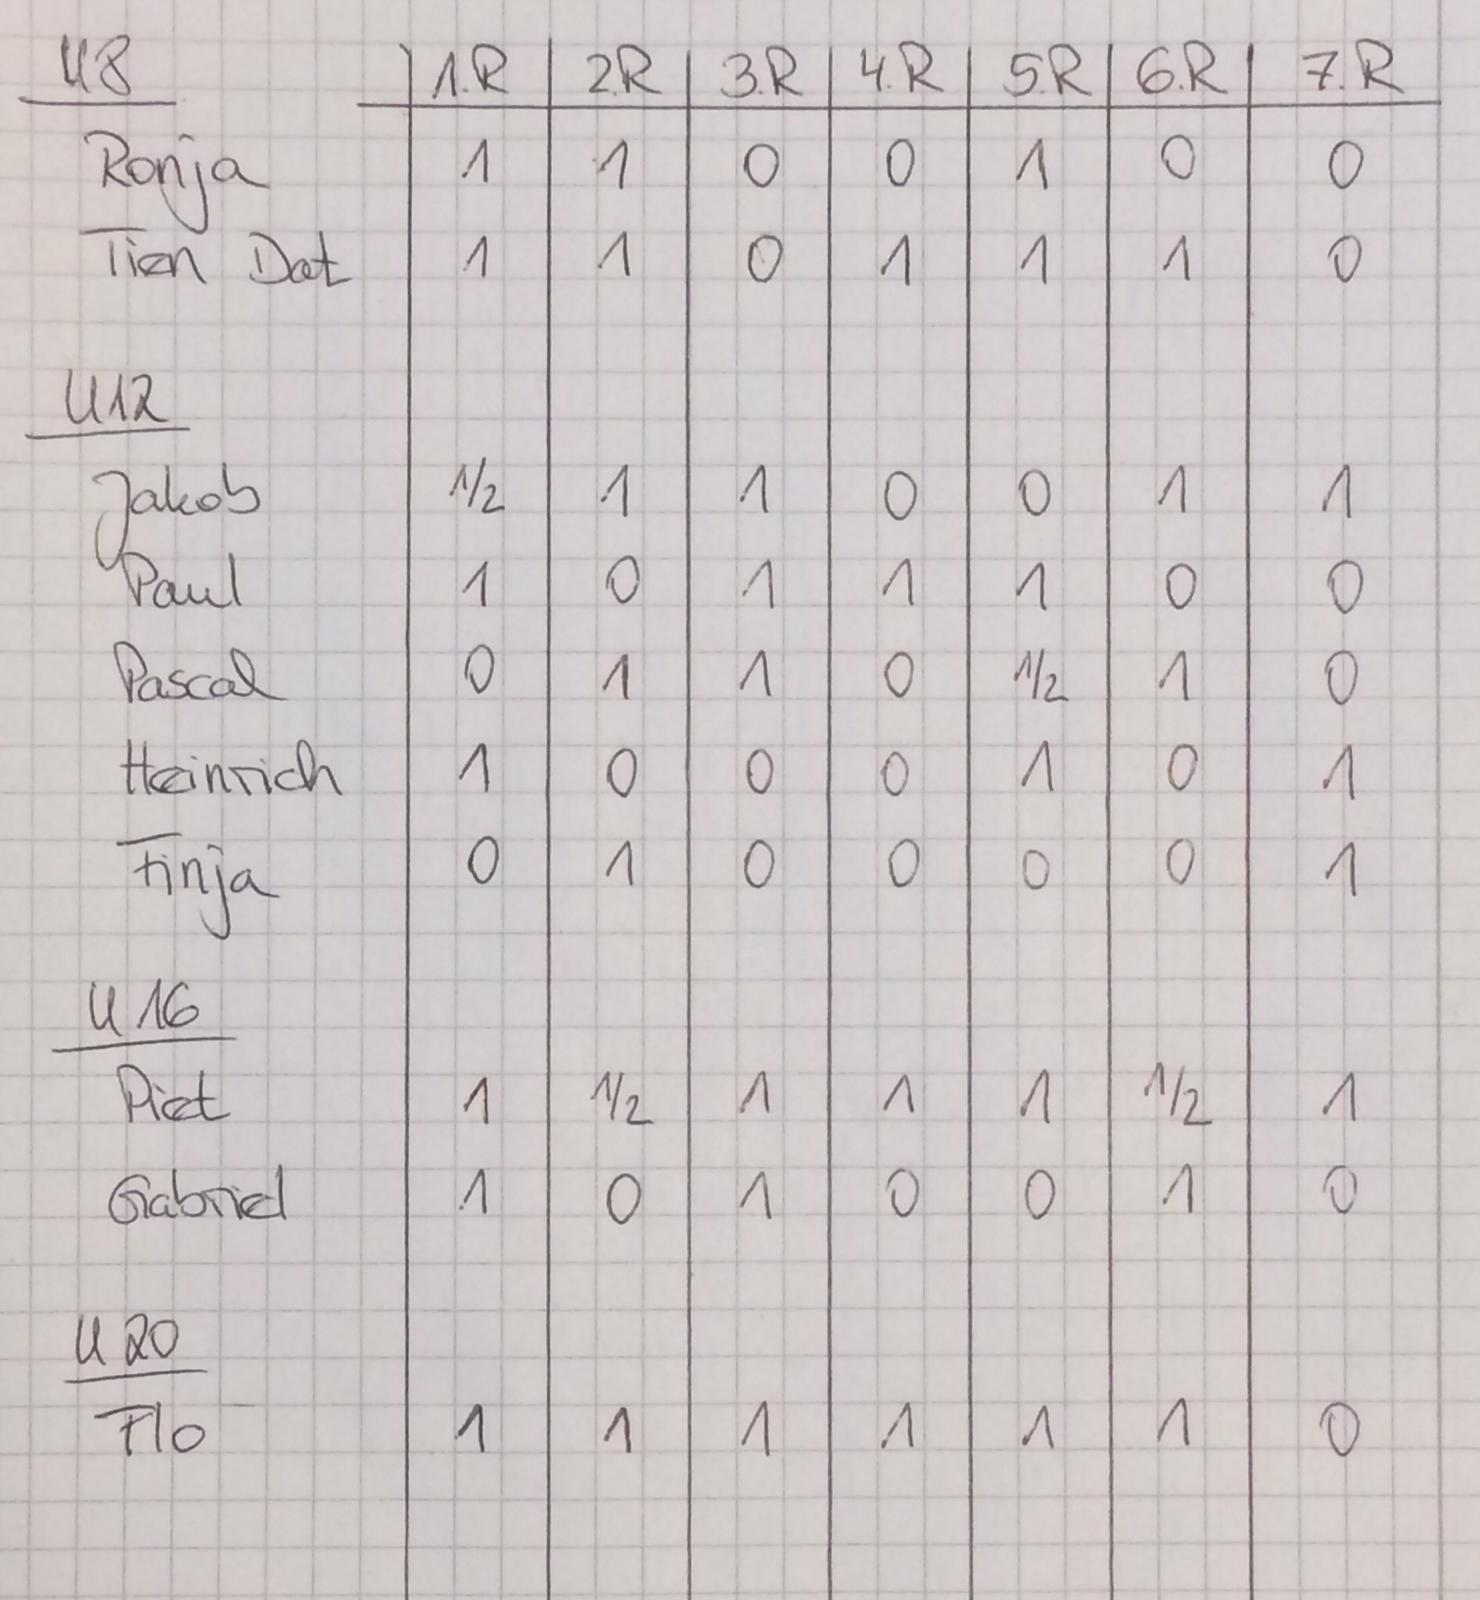 U8 1.R 2.R 3.R 4.R 5.R 6.R 7.R
Ronja 1 1 0 0 1 0 0
Tien Dat 1 1 0 1 1 1 0
U12
Jakob 1/2 1 1 0 0 1 1
Paul 1 0 1 1 1 0 0
Pascal 0 1 1 0 1/2 1 0
Heinrich 1 0 0 0 1 0 1
Finja 0 1 0 0 0 0 1
U16
Piet 1 1/2 1 1 1 1/2 1
Gabriel 1 0 1 0 0 1 0
U20
Flo 1 1 1 1 1 1 0